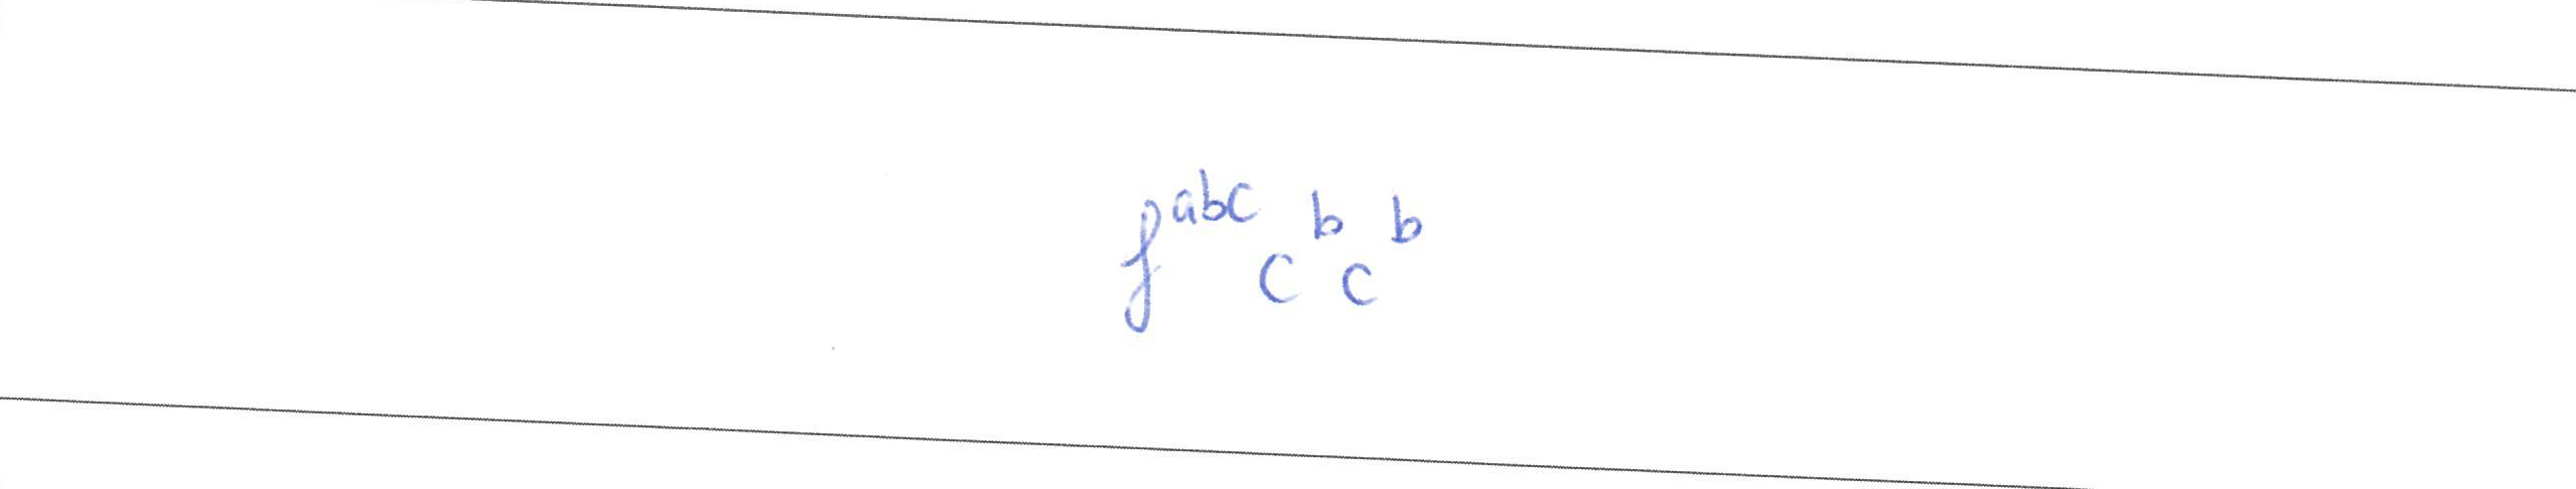 f^{abc} c^b c^b